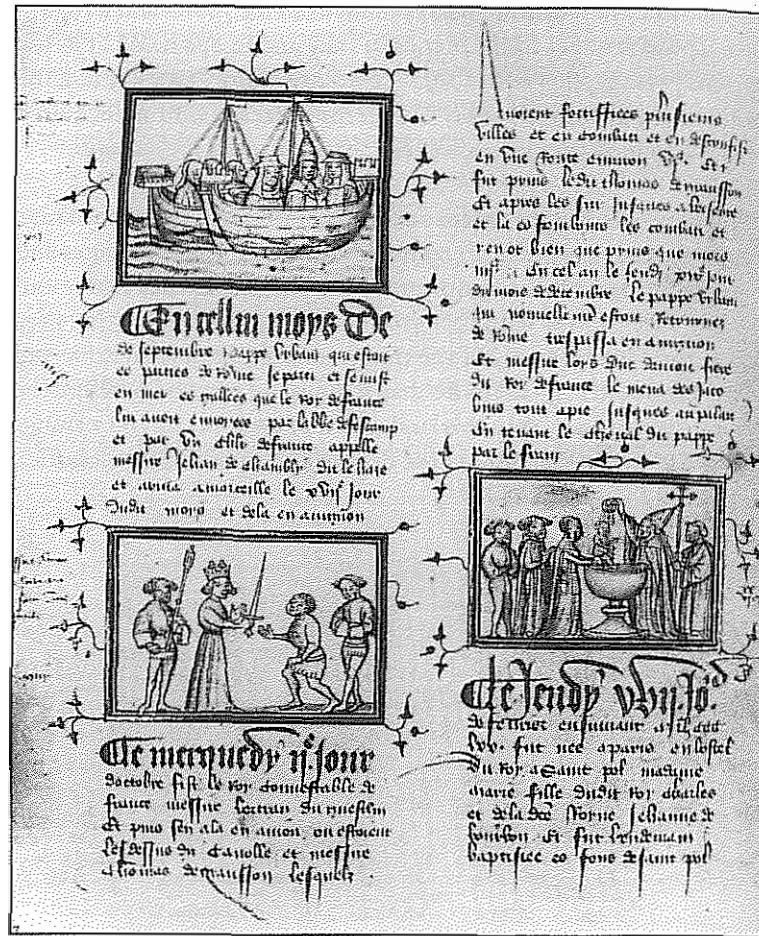 En cellui moys De
de septembre pappe Urbain qui estoit
es parties de Romme se parti et se mist
en mer es gallees que le Roy de france
lui avoit envoyees par labbe de fescamp
et par un chlr de france appelle
messire Jehan de Chambly dit le haze
et arriva a marceille le xviie jour
dudit moys et de la en avignon
Le merquedy ije jour
doctobre fist le Roy connestable de
france messire bertran du guesclin
Et puis sen ala en anjou ou estoient
les dessus dit Canolle et messire
Thomas de granson lesquelz
Avoient fortiffiees plusieurs
villes et en combati et en desconfist
en une Route environ Et
fut prins ledit thomas de granson
Et apres les sur
et la es les combati et
en ot bien que prins que mors
En cel an le Jeudi xixe jour
du mois de decembre le pappe Urbain
qui nouvellement estoit Retournez
de Romme trespassa en avignon
Et messire loys duc danjou frere
du Roy de france le mena des Jaco
bins tout a pie jusques au palais
en tenant le cheval du pappe
par le frain
Le Jeudy jo.
de fevrier ensuivant
fut nee a paris en lostel
du Roy a Saint pol madame
marie fille dudit Roy charles
et de la dce Royne Jehanne de
bourbon Et fut lendemain
baptisiee es fons de saint pol